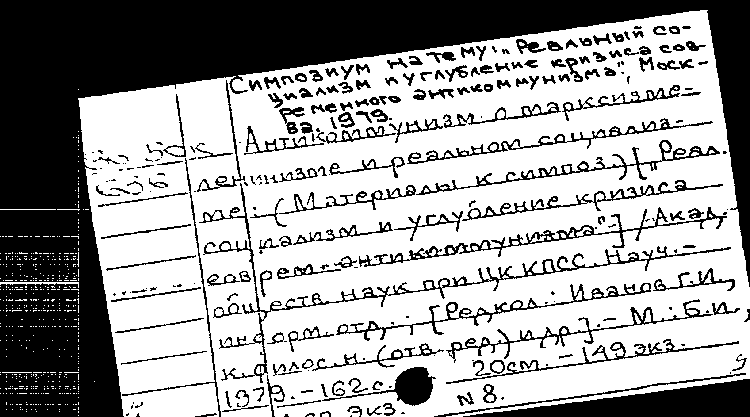 Симпозиум на тему: „Реальный со-
циализм и углубление кризиса сов-
ременного антикоммунизма", Моск-
ва. 1979.
Антикоммунизм о марксизме-
ленинизме и реальном социализ-
ме: (Материалы к симпоз.) [„Реал.
социализм и углубление кризиса
соврем. антикоммунизма"] / Акад.
обществ. наук при ЦК КПСС. Науч.-
информ. отд.; [Редкол.: Иванов Г.И.,
к.филос.н. (отв. ред.) и др.]. - М.: Б.и.,
1979. - 162 с. 20см. - 149 экз.
экз. N 8.